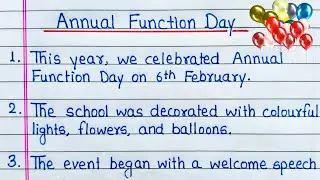 Annual Function Day
1. This year, we celebrated Annual
Function Day on 6th February.
2. The school was decorated with colourful
lights, flowers, and balloons.
3. The event began with a welcome speech